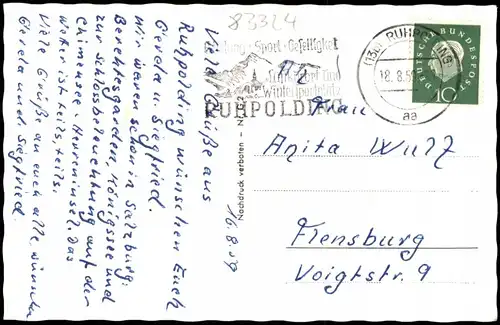 83324
Erholung · Sport · Geselligkeit
Wintersportplatz
RUHPOLDING
(13b) RUHPOLDING
18.8.59
aa
DEUTSCHE BUNDESPOST
10
Viele Grüße aus
Ruhpolding wünschen Euch
Gerda u. Siegfried.
Wir waren schon in Salzburg,
Berchtesgaden, Königssee und
zur Schlossbeleuchtung auf der
Chiemsee-Herreninsel. Das
Wetter ist teils, teils.
Viele Grüße an euch alle, wünschen
Gerda und Siegfried.
16.8.59
Nachdruck verboten
Frau
Anita Wulz
Flensburg
Voigtstr. 9